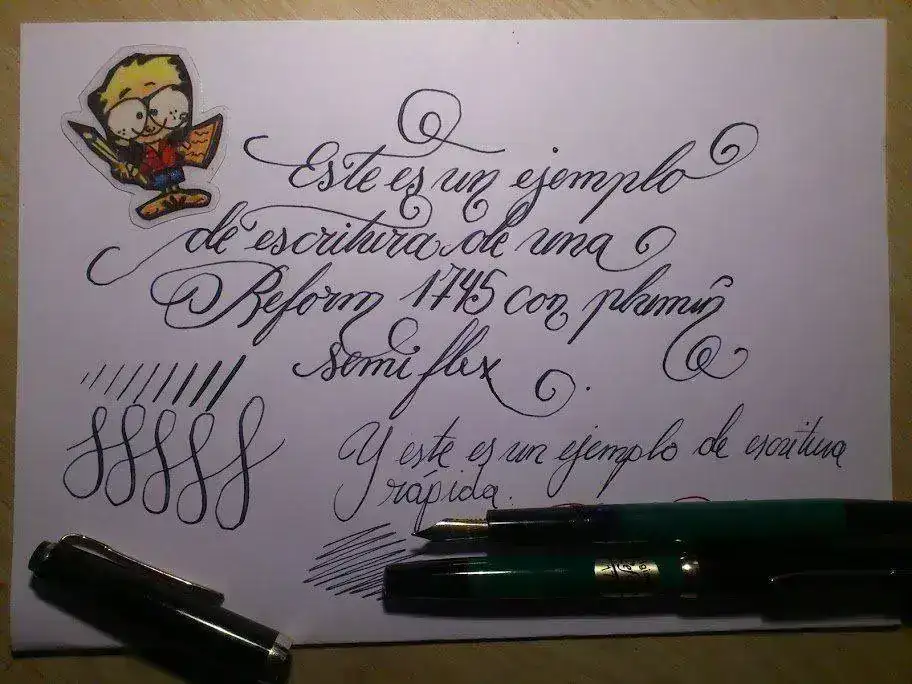 Este es un ejemplo
de escritura de una
Reform 1745 con plumín
semi flex.
Y este es un ejemplo de escritura
rápida.